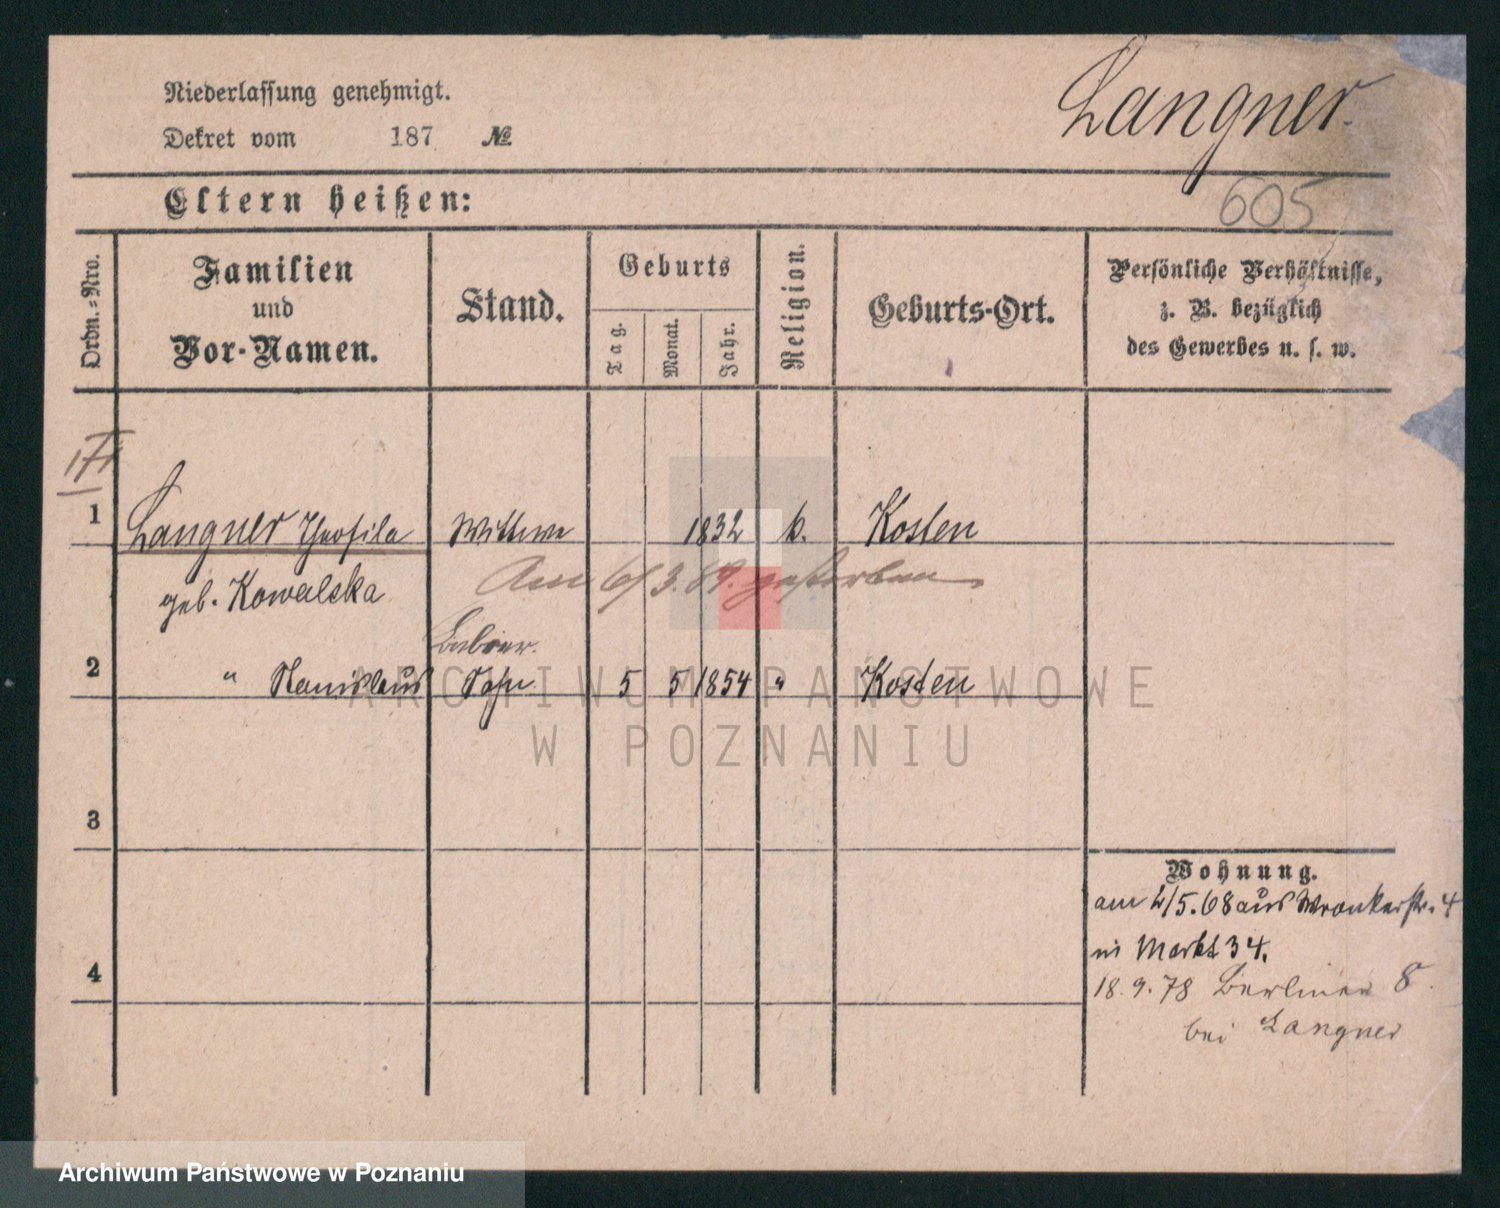 Niederlassung genehmigt.
Dekret vom 187 №
Langner.
Eltern heißen:
605
Ordn.-Nro.
Familien
und
Vor-Namen.
Stand.
Geburts
Tag.
Monat.
Jahr.
Religion.
Geburts-Ort.
Persönliche Verhältnisse,
z. B. bezüglich
des Gewerbes u. s. w.
1 Langner Theofila Wittwe 1832 k. Kosten
geb. Kowalska
Am 6/3.89. gestorben
2 " Stanislaus Sohn 5 5 1854 " Kosten
3
4
Wohnung.
am 2/5.68 aus Wronkerstr. 4
in Markt 34.
18.9.78 Berliner 8.
bei Langner
ARCHIWUM PAŃSTWOWE
W POZNANIU
Archiwum Państwowe w Poznaniu